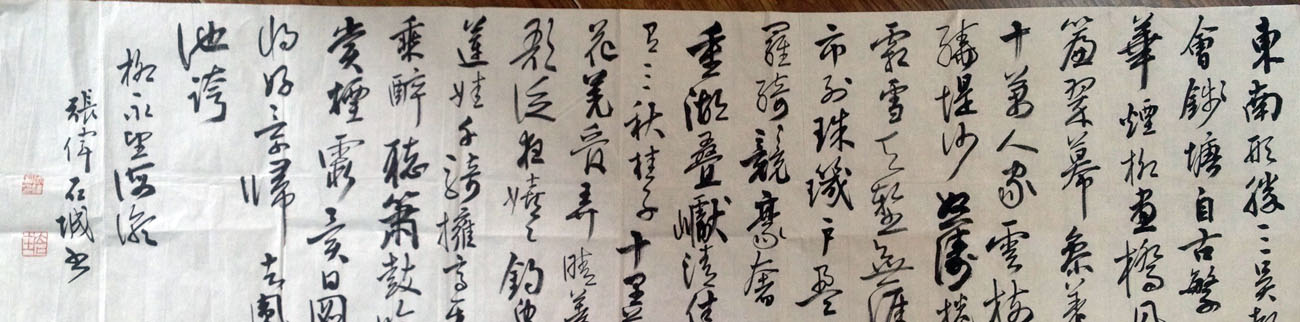 東南形勝三吳都
會錢塘自古繁
華煙柳畫橋風
簾翠幕參差
十萬人家雲樹
繞堤沙怒濤捲
霜雪天塹無涯
市列珠璣戶盈
羅綺競豪奢
重湖疊巘清佳
有三秋桂子十里
花羌管弄晴菱
歌泛夜嬉〻釣叟
蓮娃千騎擁高牙
乘醉聽簫鼓吟
賞煙霞異日圖
將好景歸去鳳
池誇
柳永望海潮
張偉